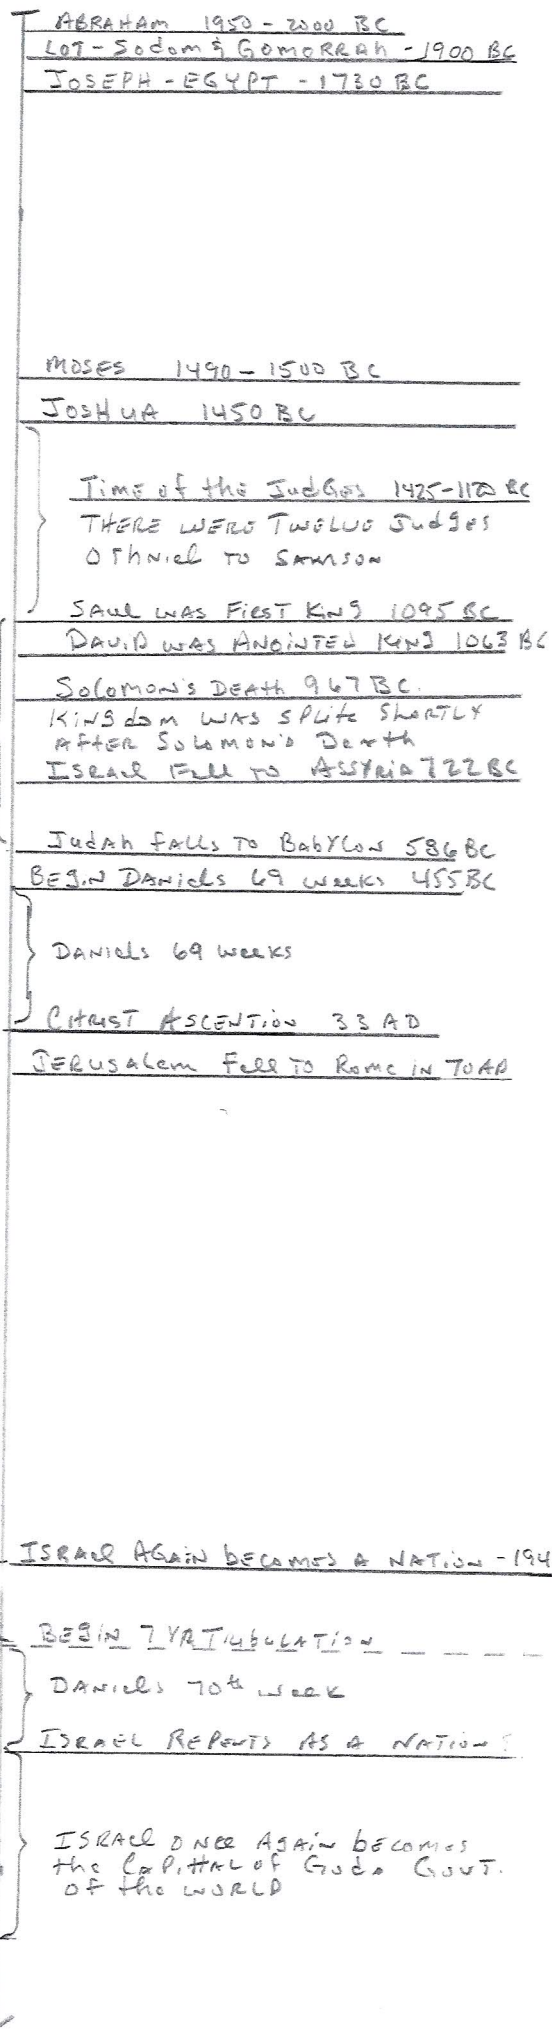 ABRAHAM 1950 - 2000 BC
LOT - Sodom & GOMORRAH - 1900 BC
JOSEPH - EGYPT - 1730 BC
MOSES 1490 - 1500 BC
JOSHUA 1450 BC
Time of the Judges 1425-1120 BC
THERE WERE TWELVE Judges
OTHNiel TO SAMSON
SAUL WAS FIRST KING 1095 BC
DAVID WAS ANOINTED KING 1063 BC
SOLOMON'S DEATH 967 BC.
KINGdom WAS SPLITE SHORTLY
AFTER SOLOMON'S Death
ISRAEL Fell TO ASSYRIA 722 BC
JUDAH FALLS TO BABYLON 586 BC
BEGIN DANIELS 69 weeks 455 BC
DANIELS 69 weeks
CHRIST ASCENTION 33 AD
JERUSALEM Fell TO Rome IN 70 AD
ISRAEL AGAIN becomes A NATION - 194
BEGIN 7 YR TRIBULATION
DANIELS 70th week
ISRAEL REPENTS AS A NATION
ISRAEL ONCE AGAIN becomes
the CAPITAL OF Gods GOVT.
OF the WORLD